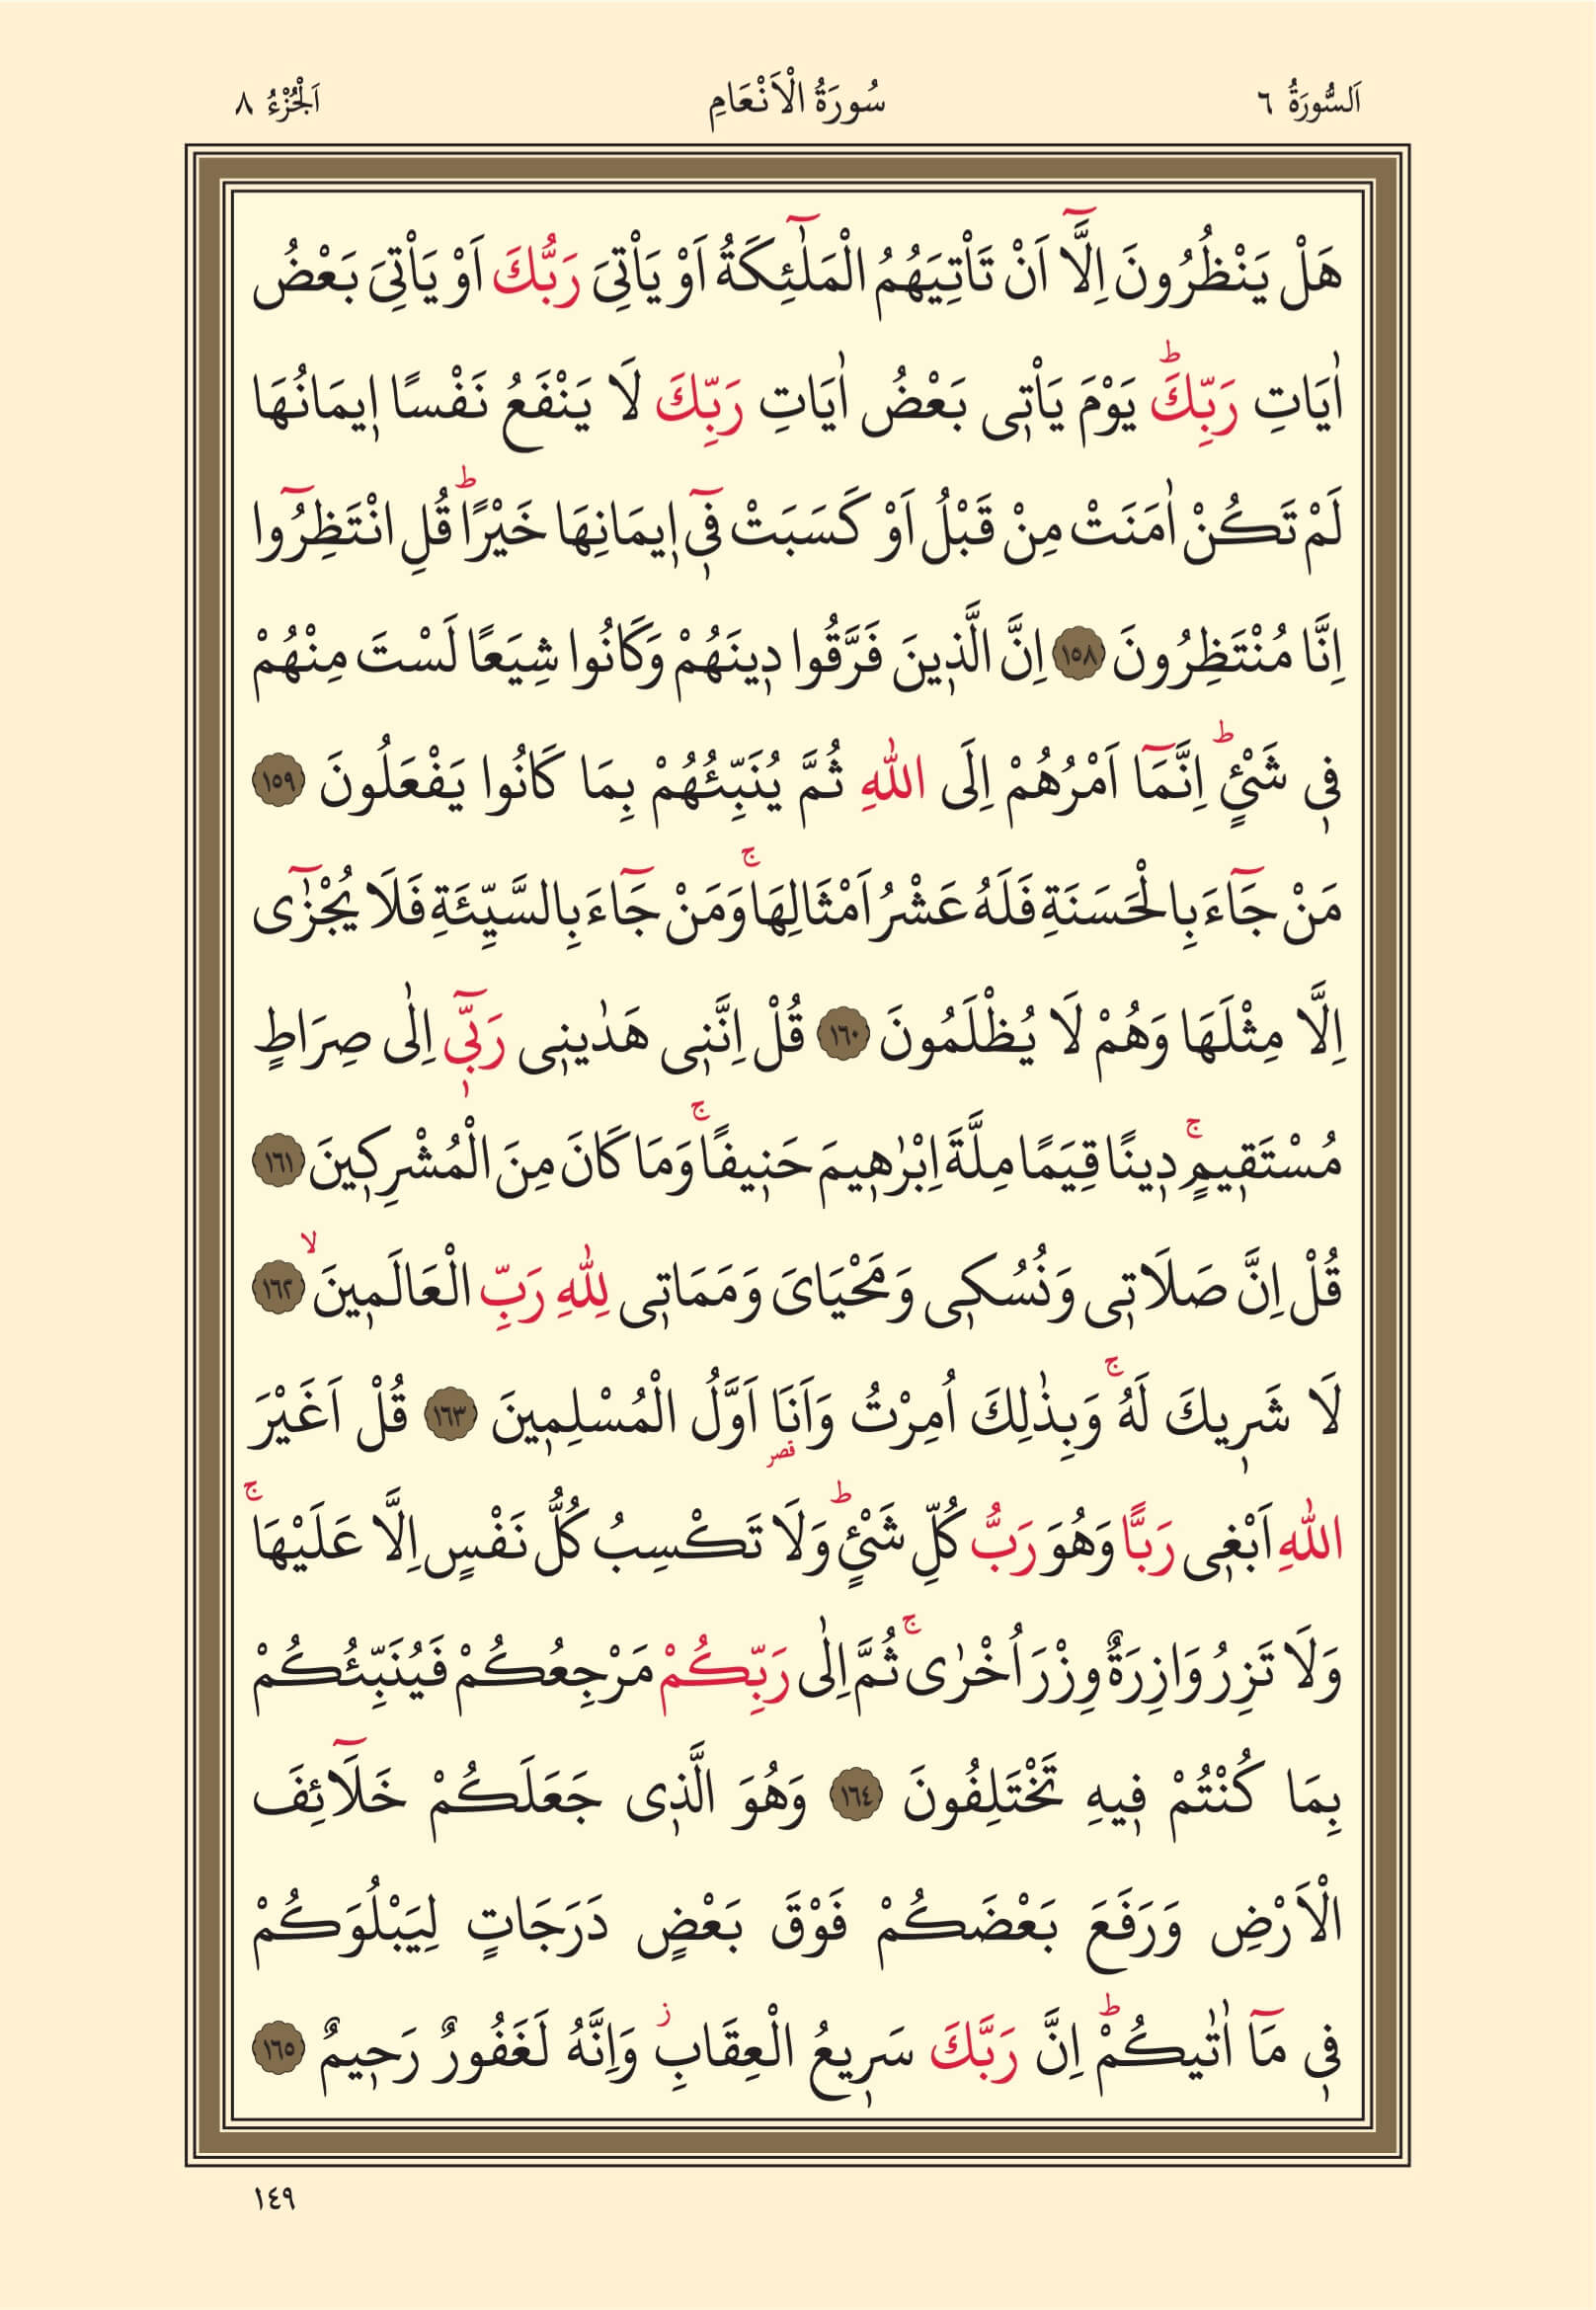 اَلسُّورَةُ ٦ سُورَةُ الْاَنْعَامِ اَلْجُزْءُ ٨
هَلْ يَنْظُرُونَ اِلَّٓا اَنْ تَاْتِيَهُمُ الْمَلٰٓئِكَةُ اَوْ يَاْتِىَ رَبُّكَ اَوْ يَاْتِىَ بَعْضُ
اٰيَاتِ رَبِّكَۜ يَوْمَ يَاْت۪ى بَعْضُ اٰيَاتِ رَبِّكَ لَا يَنْفَعُ نَفْسًا ا۪يمَانُهَا
لَمْ تَكُنْ اٰمَنَتْ مِنْ قَبْلُ اَوْ كَسَبَتْ ف۪ٓى ا۪يمَانِهَا خَيْرًاۜ قُلِ انْتَظِرُٓوا
اِنَّا مُنْتَظِرُونَ ﴿١٥٨﴾ اِنَّ الَّذ۪ينَ فَرَّقُوا د۪ينَهُمْ وَكَانُوا شِيَعًا لَسْتَ مِنْهُمْ
ف۪ى شَىْءٍۜ اِنَّمَٓا اَمْرُهُمْ اِلَى اللّٰهِ ثُمَّ يُنَبِّئُهُمْ بِمَا كَانُوا يَفْعَلُونَ ﴿١٥٩﴾
مَنْ جَٓاءَ بِالْحَسَنَةِ فَلَهُ عَشْرُ اَمْثَالِهَاۚ وَمَنْ جَٓاءَ بِالسَّيِّئَةِ فَلَا يُجْزٰٓى
اِلَّا مِثْلَهَا وَهُمْ لَا يُظْلَمُونَ ﴿١٦٠﴾ قُلْ اِنَّن۪ى هَدٰين۪ى رَبّ۪ٓى اِلٰى صِرَاطٍ
مُسْتَق۪يمٍۚ د۪ينًا قِيَمًا مِلَّةَ اِبْرٰه۪يمَ حَن۪يفًاۚ وَمَا كَانَ مِنَ الْمُشْرِك۪ينَ ﴿١٦١﴾
قُلْ اِنَّ صَلَات۪ى وَنُسُك۪ى وَمَحْيَاىَ وَمَمَات۪ى لِلّٰهِ رَبِّ الْعَالَم۪ينَۙ ﴿١٦٢﴾
لَا شَر۪يكَ لَهُۚ وَبِذٰلِكَ اُمِرْتُ وَاَنَا۬ اَوَّلُ الْمُسْلِم۪ينَ ﴿١٦٣﴾ قُلْ اَغَيْرَ
قصر
اللّٰهِ اَبْغ۪ى رَبًّا وَهُوَ رَبُّ كُلِّ شَىْءٍۜ وَلَا تَكْسِبُ كُلُّ نَفْسٍ اِلَّا عَلَيْهَاۚ
وَلَا تَزِرُ وَازِرَةٌ وِزْرَ اُخْرٰىۚ ثُمَّ اِلٰى رَبِّكُمْ مَرْجِعُكُمْ فَيُنَبِّئُكُمْ
بِمَا كُنْتُمْ ف۪يهِ تَخْتَلِفُونَ ﴿١٦٤﴾ وَهُوَ الَّذ۪ى جَعَلَكُمْ خَلَٓائِفَ
الْاَرْضِ وَرَفَعَ بَعْضَكُمْ فَوْقَ بَعْضٍ دَرَجَاتٍ لِيَبْلُوَكُمْ
ف۪ى مَٓا اٰتٰيكُمْۜ اِنَّ رَبَّكَ سَر۪يعُ الْعِقَابِۘ وَاِنَّهُ لَغَفُورٌ رَح۪يمٌ ﴿١٦٥﴾
١٤٩